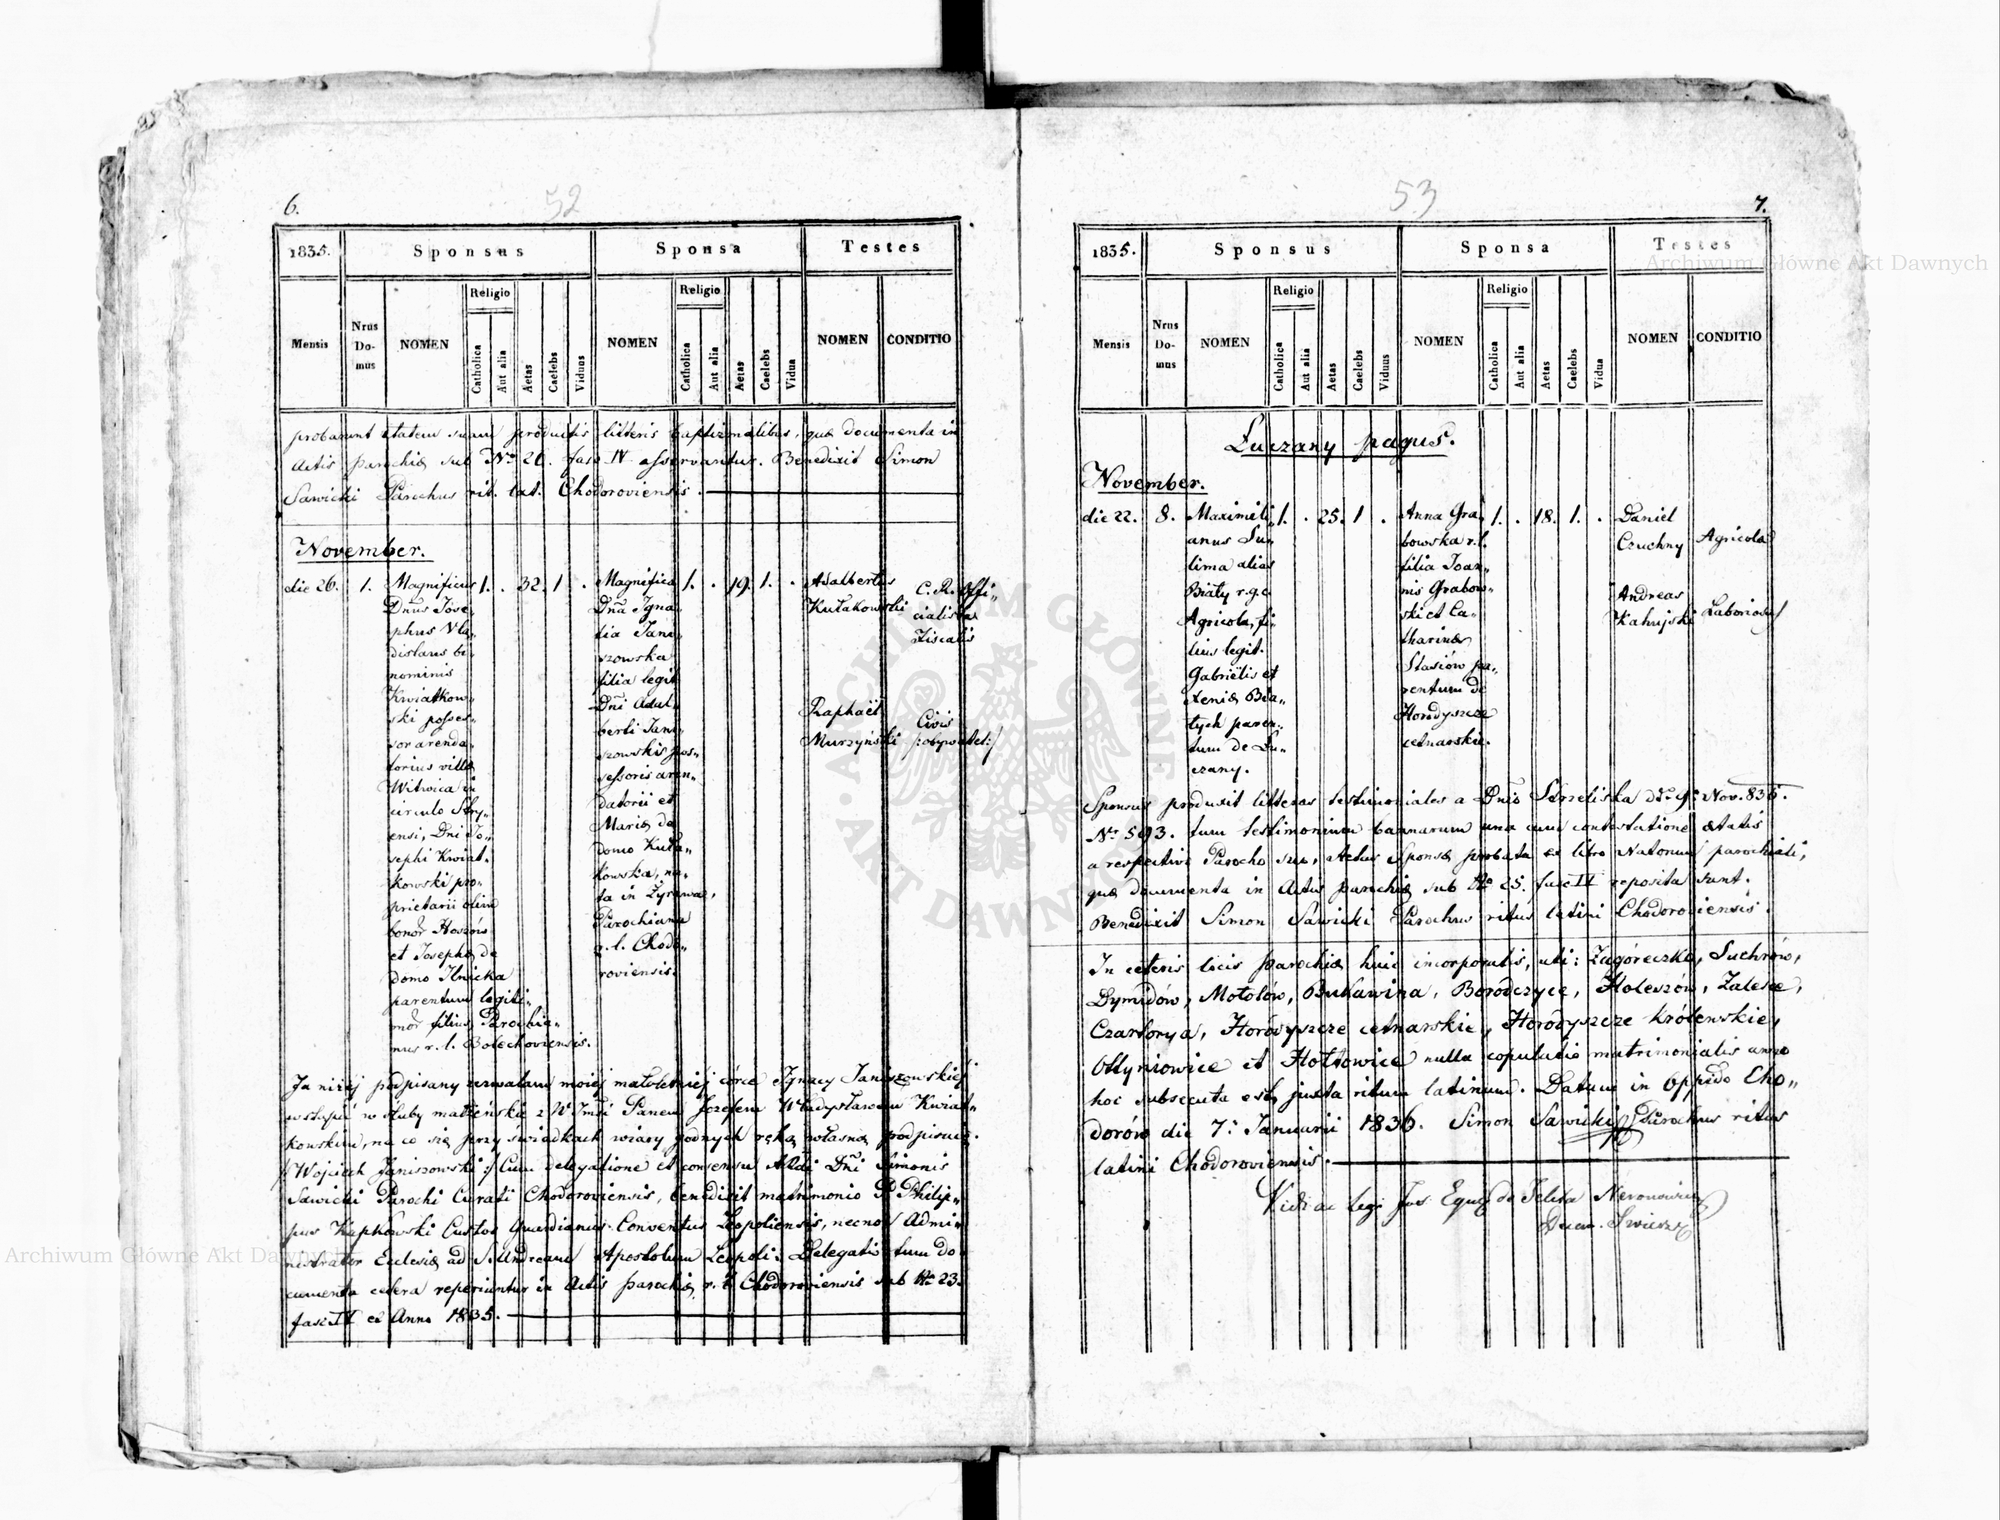 6.
52
1835.
Sponsus
Sponsa
Testes
Mensis
Nrus Domus
NOMEN
Religio
Catholica
Aut alia
Aetas
Caelebs
Viduus
NOMEN
Religio
Catholica
Aut alia
Aetas
Caelebs
Vidua
NOMEN
CONDITIO
probarunt ætatem suam productis litteris baptismalibus, quæ documenta in
Actis parochiæ sub Nro 26. fasc IV asservantur. Benedixit Simon
Sawicki Parochus rit. lat. Chodoroviensis.
November.
die 26.
1.
Magnificus
Dnus Jose-
phus Vla-
dislaus bi-
nominis
Kwiatkow-
ski posses-
sor arenda-
torius villæ
Witwica in
circulo Stry-
ensi, Dni Jo-
sephi Kwiat-
kowski pro-
prietarii olim
bonor Hoszów
et Josephæ de
domo Ilnicka
parentum legiti-
mor filius, Parochia-
nus r. l. Bolechoviensis.
1.
.
32.
1
.
Magnifica
Dna Igna-
tia Jani-
szowska
filia legit
Dni Adal-
berti Jani-
szowski pos-
sessoris aren-
datorii et
Mariæ de
domo Kuła-
kowska, na-
ta in Żyrawa,
Parochiana
r. l. Chodo-
roviensis.
1.
.
19.
1.
.
Adalbertus
Kułakowski
C. R. Offi-
cialista
Fiscalis
Raphaël
Murzyński
Civis
/:obywatel:/
Ja niżej podpisany zezwalam mojej małoletniej córce Ignacy Janiszowskiej
wstąpić w śluby małżeńskie z W Jmci Panem Józefem Władysławem Kwiat-
kowskim, na co się przy świadkach wiary godnych ręką własną podpisuję.
/:Wojciech Janiszowski:/ Cum delegatione et consensu Dni Simonis
Sawicki Parochi Curati Chodoroviensis, benedixit matrimonio P. Philip-
pus Kapkowski Custos Guardianus Conventus Leopoliensis, necnon Admi-
nistrator Eclesiæ ad S. Andream Apostolum Leopoli: Delegatio tum do-
cumenta cetera reperiuntur in Actis parochiæ r. l. Chodoroviensis sub Nro 23.
fasc IV ex Anno 1835.
53
7.
1835.
Sponsus
Sponsa
Testes
Mensis
Nrus Domus
NOMEN
Religio
Catholica
Aut alia
Aetas
Caelebs
Viduus
NOMEN
Religio
Catholica
Aut alia
Aetas
Caelebs
Vidua
NOMEN
CONDITIO
Luczany pagus.
November.
die 22.
8.
Maximili-
anus Su-
lima alias
Biały r. g. c.
Agricola, fi-
lius legit.
Gabriëlis et
Xeniæ Bia-
łych paren-
tum de Lu-
czany.
1.
.
25.
1
.
Anna Gra-
bowska r. l.
filia Joan-
nis Grabow-
ski et Ca-
tharinæ
Stasiów pa-
rentum de
Horodyszcze
cetnarskie.
1.
.
18.
1.
.
Daniel
Czuchny
Agricola
Andreas
Kahujski
Laboriosus
Sponsus produxit litteras testimoniales a Dnio Strzeliska dto 9. Nov. 835.
Nro 593. tum testimonium bannorum una cum contestatione ætatis
a respectivo Parocho suo, Aetas Sponsæ probata ex libro Natorum parochiali,
quæ documenta in Actis parochiæ sub Nro 25. fasc IV reposita sunt.
Benedixit Simon Sawicki Parochus ritus latini Chodoroviensis.
In ceteris locis parochiæ huic incorporatis, uti: Zagóreczko, Suchrów,
Dymidów, Mołotów, Bukawina, Borodczyce, Holeszów, Zalesce,
Czartorya, Horodyszcze cetnarskie, Horodyszcze Królewskie,
Ottyniowice et Hołdowice nulla copulatio matrimonialis anno
hoc subsecuta est juxta ritum latinum. Datum in Oppido Cho-
dorów die 7. Januarii 1836. Simon Sawicki Parochus ritus
latini Chodoroviensis.
Vidi ac legi Jos. Eques de Jelita Neronowicz
Decan.
Archiwum Główne Akt Dawnych
Archiwum Główne Akt Dawnych
ARCHIWUM GŁÓWNE AKT DAWNYCH